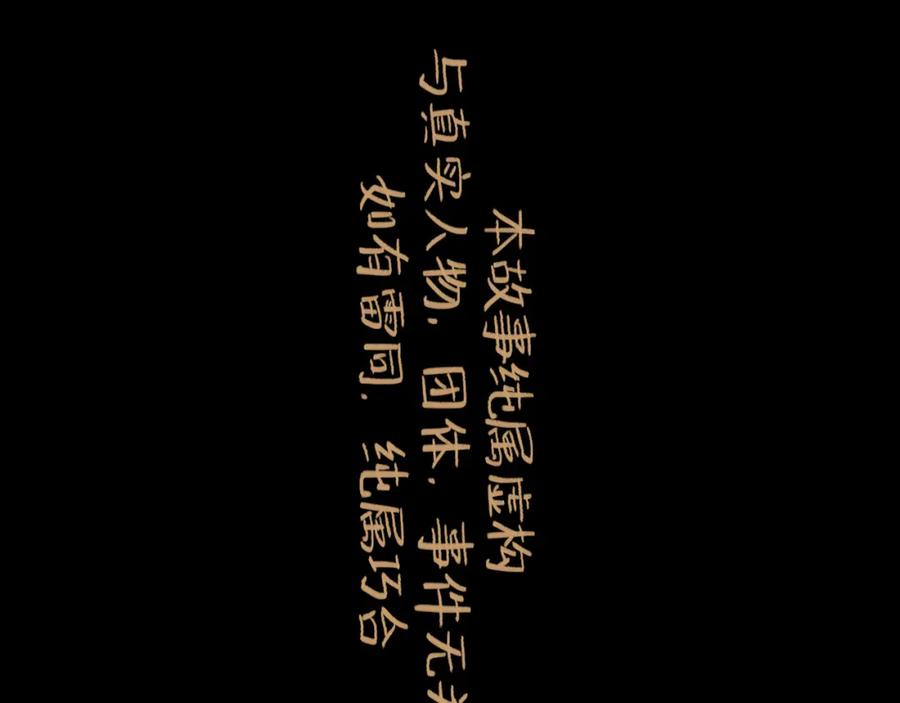 本故事纯属虚构
与真实人物，团体，事件无关
如有雷同，纯属巧合